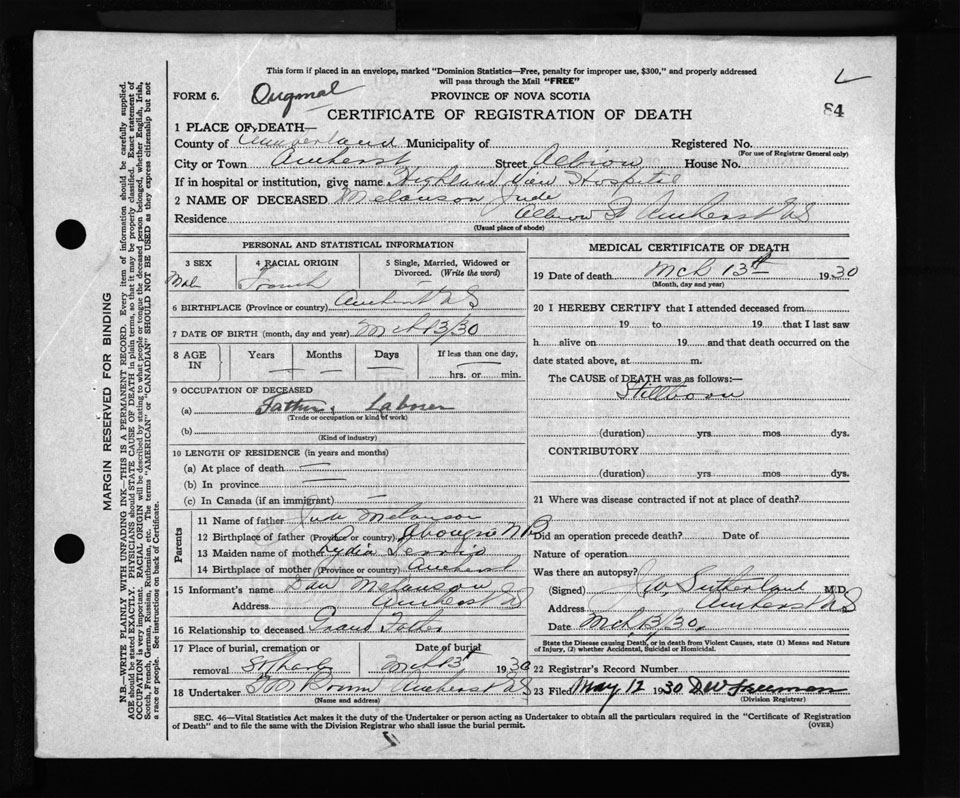 This form if placed in an envelope, marked "Dominion Statistics—Free, penalty for improper use, $300," and properly addressed
will pass through the Mail "FREE"
FORM 6. Original PROVINCE OF NOVA SCOTIA
84
CERTIFICATE OF REGISTRATION OF DEATH
1 PLACE OF DEATH—
County of Cumberland Municipality of Registered No.
(For use of Registrar General only)
City or Town Amherst Street Albion House No.
If in hospital or institution, give name Highland View Hospital
2 NAME OF DECEASED Melanson Jude
Residence Albion St Amherst NS
(Usual place of abode)
PERSONAL AND STATISTICAL INFORMATION
3 SEX 4 RACIAL ORIGIN 5 Single, Married, Widowed or
Divorced. (Write the word)
Mal French
6 BIRTHPLACE (Province or country) Amherst NS
7 DATE OF BIRTH (month, day and year) Mch 13/30
8 AGE IN Years Months Days If less than one day,
— — — hrs. or min.
9 OCCUPATION OF DECEASED
(a) Father, Laborer
(Trade or occupation or kind of work)
(b)
(Kind of industry)
10 LENGTH OF RESIDENCE (in years and months)
(a) At place of death —
(b) In province —
(c) In Canada (if an immigrant) —
Parents
11 Name of father Jude Melanson
12 Birthplace of father (Province or country) NB
13 Maiden name of mother Lydia
14 Birthplace of mother (Province or country) Amherst
15 Informant's name Dan Melanson
Address Amherst NS
16 Relationship to deceased Grand Father
17 Place of burial, cremation or Date of burial
removal Mch 13th 1930
18 Undertaker Amherst NS
(Name and address)
MEDICAL CERTIFICATE OF DEATH
19 Date of death Mch 13th 1930
(Month, day and year)
20 I HEREBY CERTIFY that I attended deceased from
19 to 19 that I last saw
h alive on 19 and that death occurred on the
date stated above, at m.
The CAUSE of DEATH was as follows:—
Stillborn
(duration) yrs mos dys.
CONTRIBUTORY
(duration) yrs. mos. dys.
21 Where was disease contracted if not at place of death?
Did an operation precede death? Date of
Nature of operation
Was there an autopsy?
(Signed) Sutherland M.D.
Address Amherst NS
Date Mch 13/30.
State the Disease causing Death, or in death from Violent Causes, state (1) Means and Nature
of Injury, (2) whether Accidental, Suicidal or Homicidal.
22 Registrar's Record Number
23 Filed May 12 1930 D W Freeman
(Division Registrar)
SEC. 46—Vital Statistics Act makes it the duty of the Undertaker or person acting as Undertaker to obtain all the particulars required in the "Certificate of Registration
of Death" and to file the same with the Division Registrar who shall issue the burial permit. (OVER)
MARGIN RESERVED FOR BINDING
N.B.—WRITE PLAINLY WITH UNFADING INK—THIS IS A PERMANENT RECORD. Every item of information should be carefully supplied.
AGE should be stated EXACTLY. PHYSICIANS should STATE CAUSE OF DEATH in plain terms, so that it may be properly classified. Exact statement of
OCCUPATION is very important. RACIAL ORIGIN will be described by stating to what people or tongue the deceased person belonged, whether English, Irish,
Scotch, French, German, Russian, Ruthenian, etc. The terms "AMERICAN" or "CANADIAN" SHOULD NOT BE USED as they express citizenship but not
a race or people. See instructions on back of Certificate.